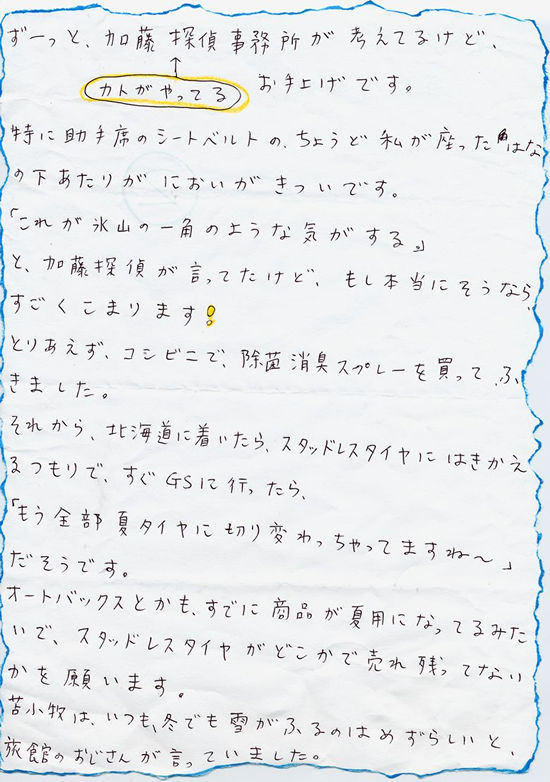 ずーっと、加藤探偵事務所が考えてるけど、
カトがやってる
お手上げです。
特に助手席のシートベルトの、ちょうど私が座った時はな
の下あたりがにおいがきついです。
「これが氷山の一角のような気がする。」
と、加藤探偵が言ってたけど、もし本当にそうなら、
すごくこまります!
とりあえず、コンビニで、除菌消臭スプレーを買って、ふ
きました。
それから、北海道に着いたら、スタッドレスタイヤにはきかえ
るつもりで、すぐGSに行ったら、
「もう全部夏タイヤに切り変わっちゃってますね〜」
だそうです。
オートバックスとかも、すでに商品が夏用になってるみた
いで、スタッドレスタイヤがどこかで売れ残ってない
かを願います。
苫小牧は、いつも、冬でも雪がふるのはめずらしいと、
旅館のおじさんが言っていました。